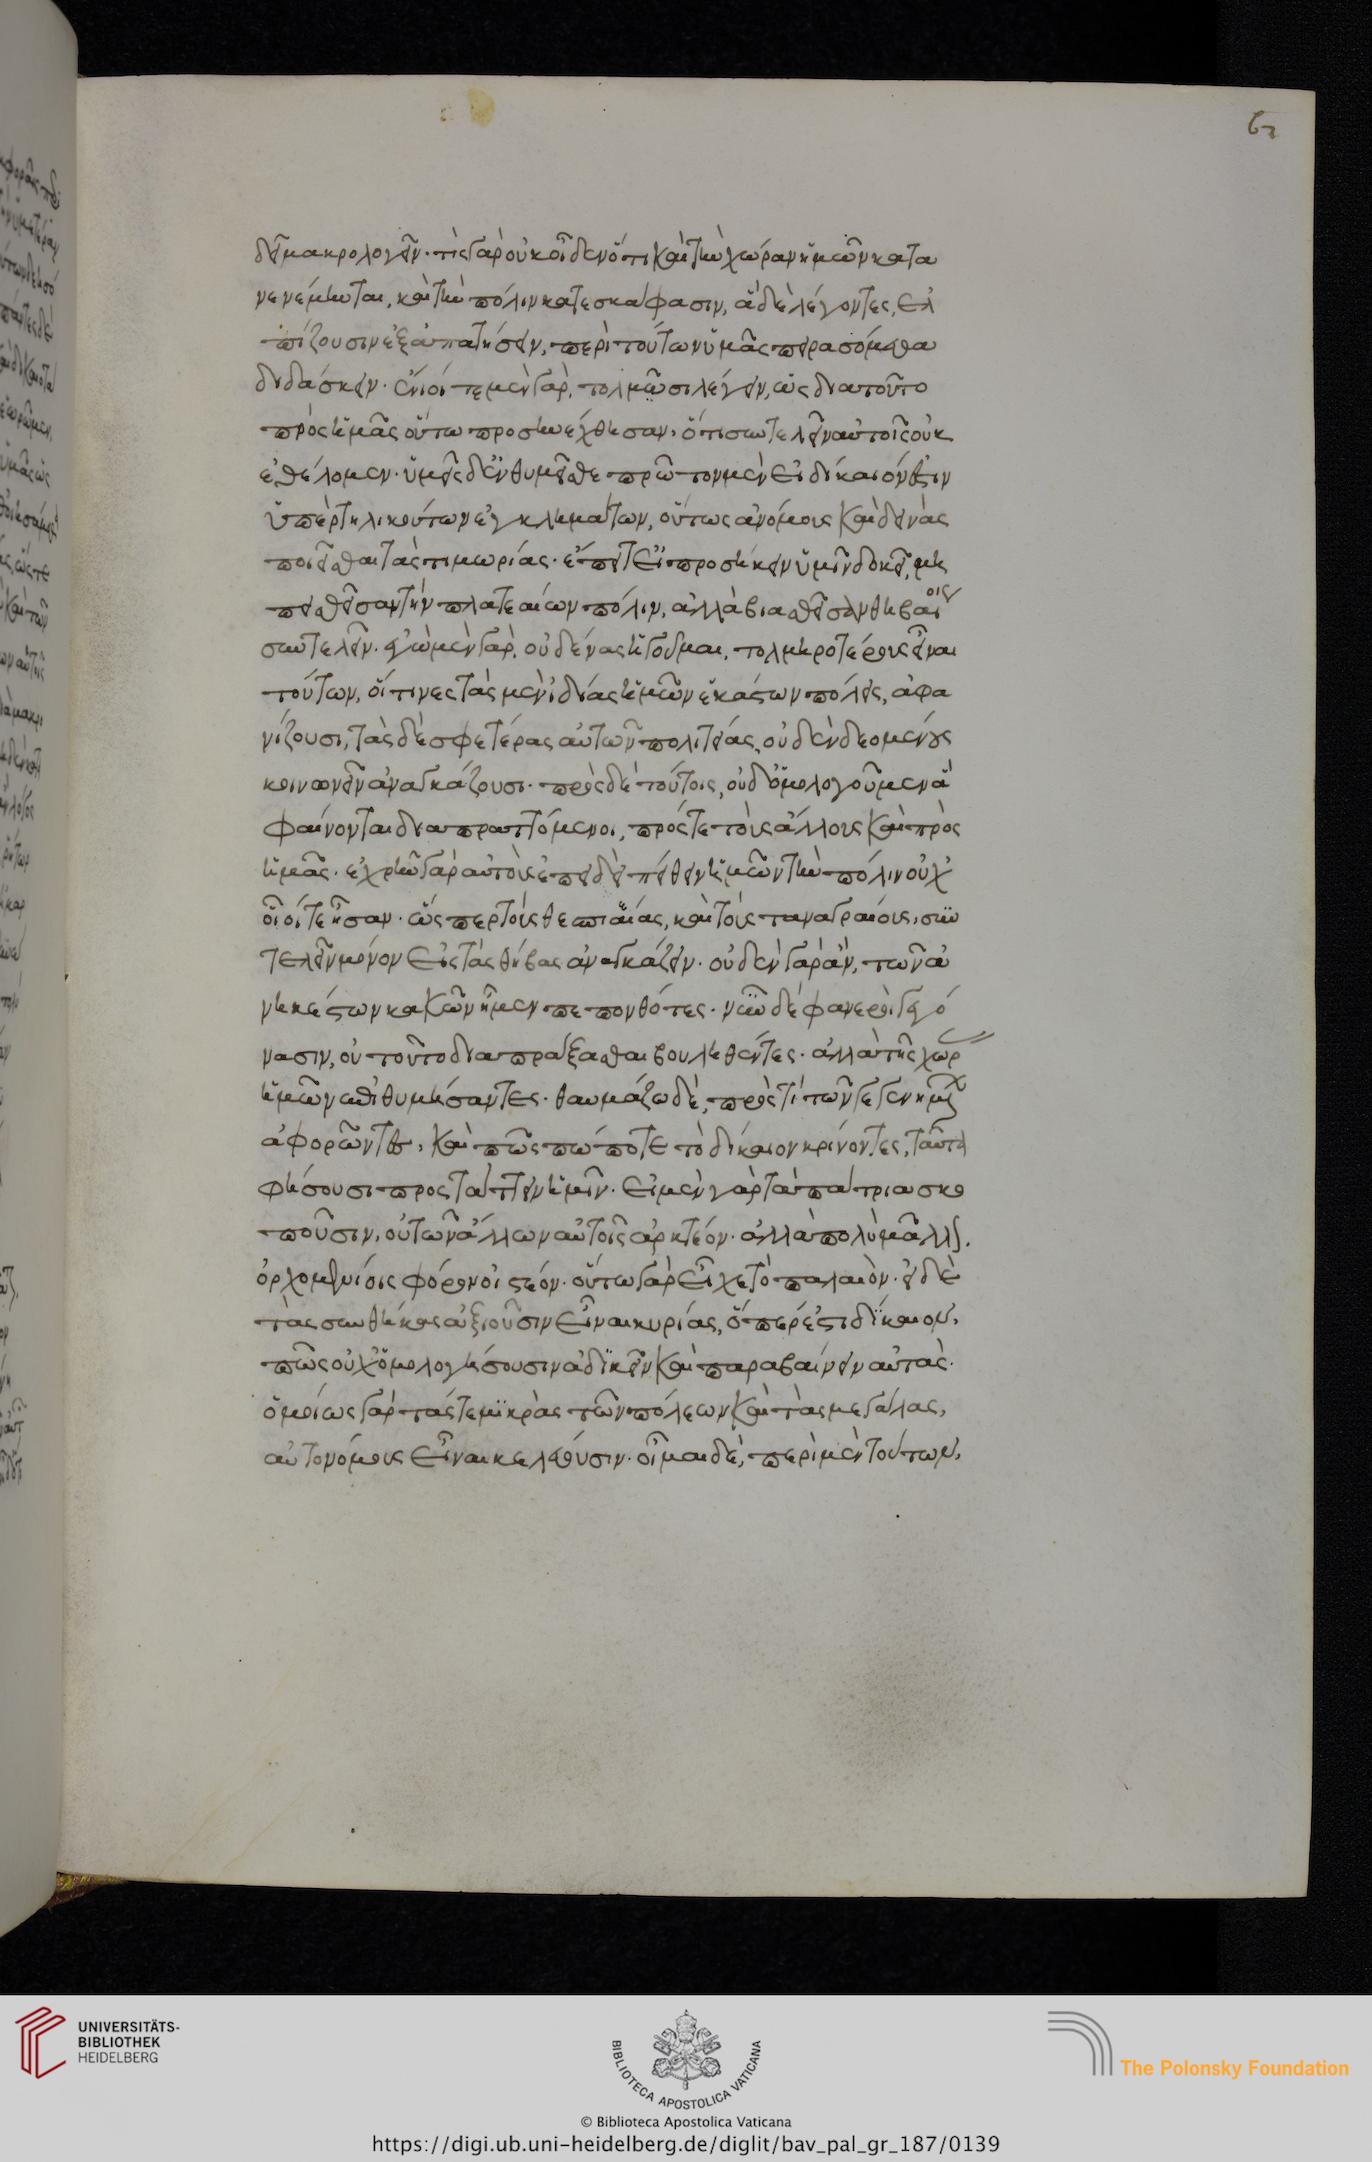 δεῖ μακρολογεῖν· τίς γὰρ οὐκ οἶδεν ὅτι καὶ τὴν χώραν ἡμῶν κατα
νενέμηνται, καὶ τὴν πόλιν κατεσκάφασιν, ἃ δὲ λέγοντες, ἐλ
πίζουσιν ἐξαπατήσειν, περὶ τούτων ὑμᾶς πειρασόμεθα
διδάσκειν. ἐνίοί τε μὲν γὰρ, τολμῶσι λέγειν, ὡς δια τοῦτο
πρὸς ἡμᾶς οὕτω προσηνέχθησαν, ὅτι συντελεῖν αὐτοῖς οὐκ
ἐθέλομεν. ὑμεῖς δ' ἐνθυμεῖσθε πρῶτον μὲν εἰ δίκαιόν ἐστιν
ὑπὲρ τηλικούτων ἐγκλημάτων, οὕτως ἀνόμους καὶ δεινὰς
ποιεῖσθαι τὰς τιμωρίας. ἔπειτ' εἰ προσήκειν ὑμῖν δοκεῖ, μὴ
πεισθεῖσαν τὴν πλαταιέων πόλιν, ἀλλὰ βιασθεῖσαν θηβαίοις
συντελεῖν. ἐγὼ μὲν γὰρ, οὐδένας ἡγοῦμαι, τολμηροτέρους εἶναι
τούτων, οἵτινες τὰς μὲν ἰδίας ἡμῶν ἑκάστων πόλεις, ἀφα
νίζουσι, τὰς δὲ σφετέρας αὐτῶν πολιτείας, οὐδὲν δεομένους
κοινωνεῖν ἀναγκάζουσι. πρὸς δὲ τούτοις, οὐδ' ὁμολογούμενα
φαίνονται διαπραττόμενοι, πρός τε τοὺς ἄλλους καὶ πρὸς
ἡμᾶς. ἐχρῆν γὰρ αὐτοὺς ἐπειδὴ πείθειν ἡμῶν τὴν πόλιν οὐχ
οἷοί τε ἦσαν. ὥσπερ τοὺς θεσπιέας, καὶ τοὺς ταναγραίους, συν
τελεῖν μόνον εἰς τὰς θήβας ἀναγκάζειν. οὐδὲν γὰρ ἂν, τῶν ἀ
νηκέστων κακῶν ἦμεν πεπονθότες. νῦν δὲ φανεροὶ γεγό
νασιν, οὐ τοῦτο διαπράξασθαι βουληθέντες. ἀλλὰ τῆς χώρ
ἡμῶν ἐπιθυμήσαντες. θαυμάζω δὲ, πρὸς τί τῶν γεγενημέν
ἀφορῶντες, καὶ πῶς πώποτε τὸ δίκαιον κρίνοντες, ταῦτα
φήσουσι προστάττειν ἡμῖν. εἰ μὲν γὰρ τὰ πάτρια σκο
ποῦσιν, οὐ τῶν ἄλλων αὐτοῖς ἀρκτέον. ἀλλὰ πολὺ μᾶλλον.
ὀρχομενίοις φόρον οἰστέον. οὕτω γὰρ εἶχε τὸ παλαιὸν. εἰ δὲ
τὰς συνθήκας ἀξιοῦσιν εἶναι κυρίας, ὅπερ ἐστὶ δίκαιον,
πῶς οὐχ ὁμολογήσουσιν ἀδικεῖν καὶ παραβαίνειν αὐτὰς.
ὁμοίως γὰρ τάς τε μικρὰς τῶν πόλεων καὶ τὰς μεγάλας,
αὐτονόμους εἶναι κελεύουσιν. οἶμαι δὲ, περὶ μὲν τούτων,
UNIVERSITÄTS-
BIBLIOTHEK
HEIDELBERG
BIBLIOTECA APOSTOLICA VATICANA
The Polonsky Foundation
© Biblioteca Apostolica Vaticana
https://digi.ub.uni-heidelberg.de/diglit/bav_pal_gr_187/0139